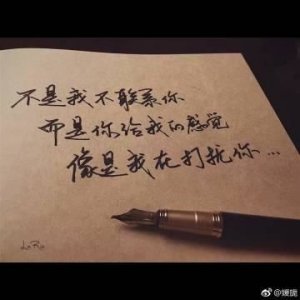 不是我不联系你
而是你给我的感觉
像是我在打扰你...
LoRo